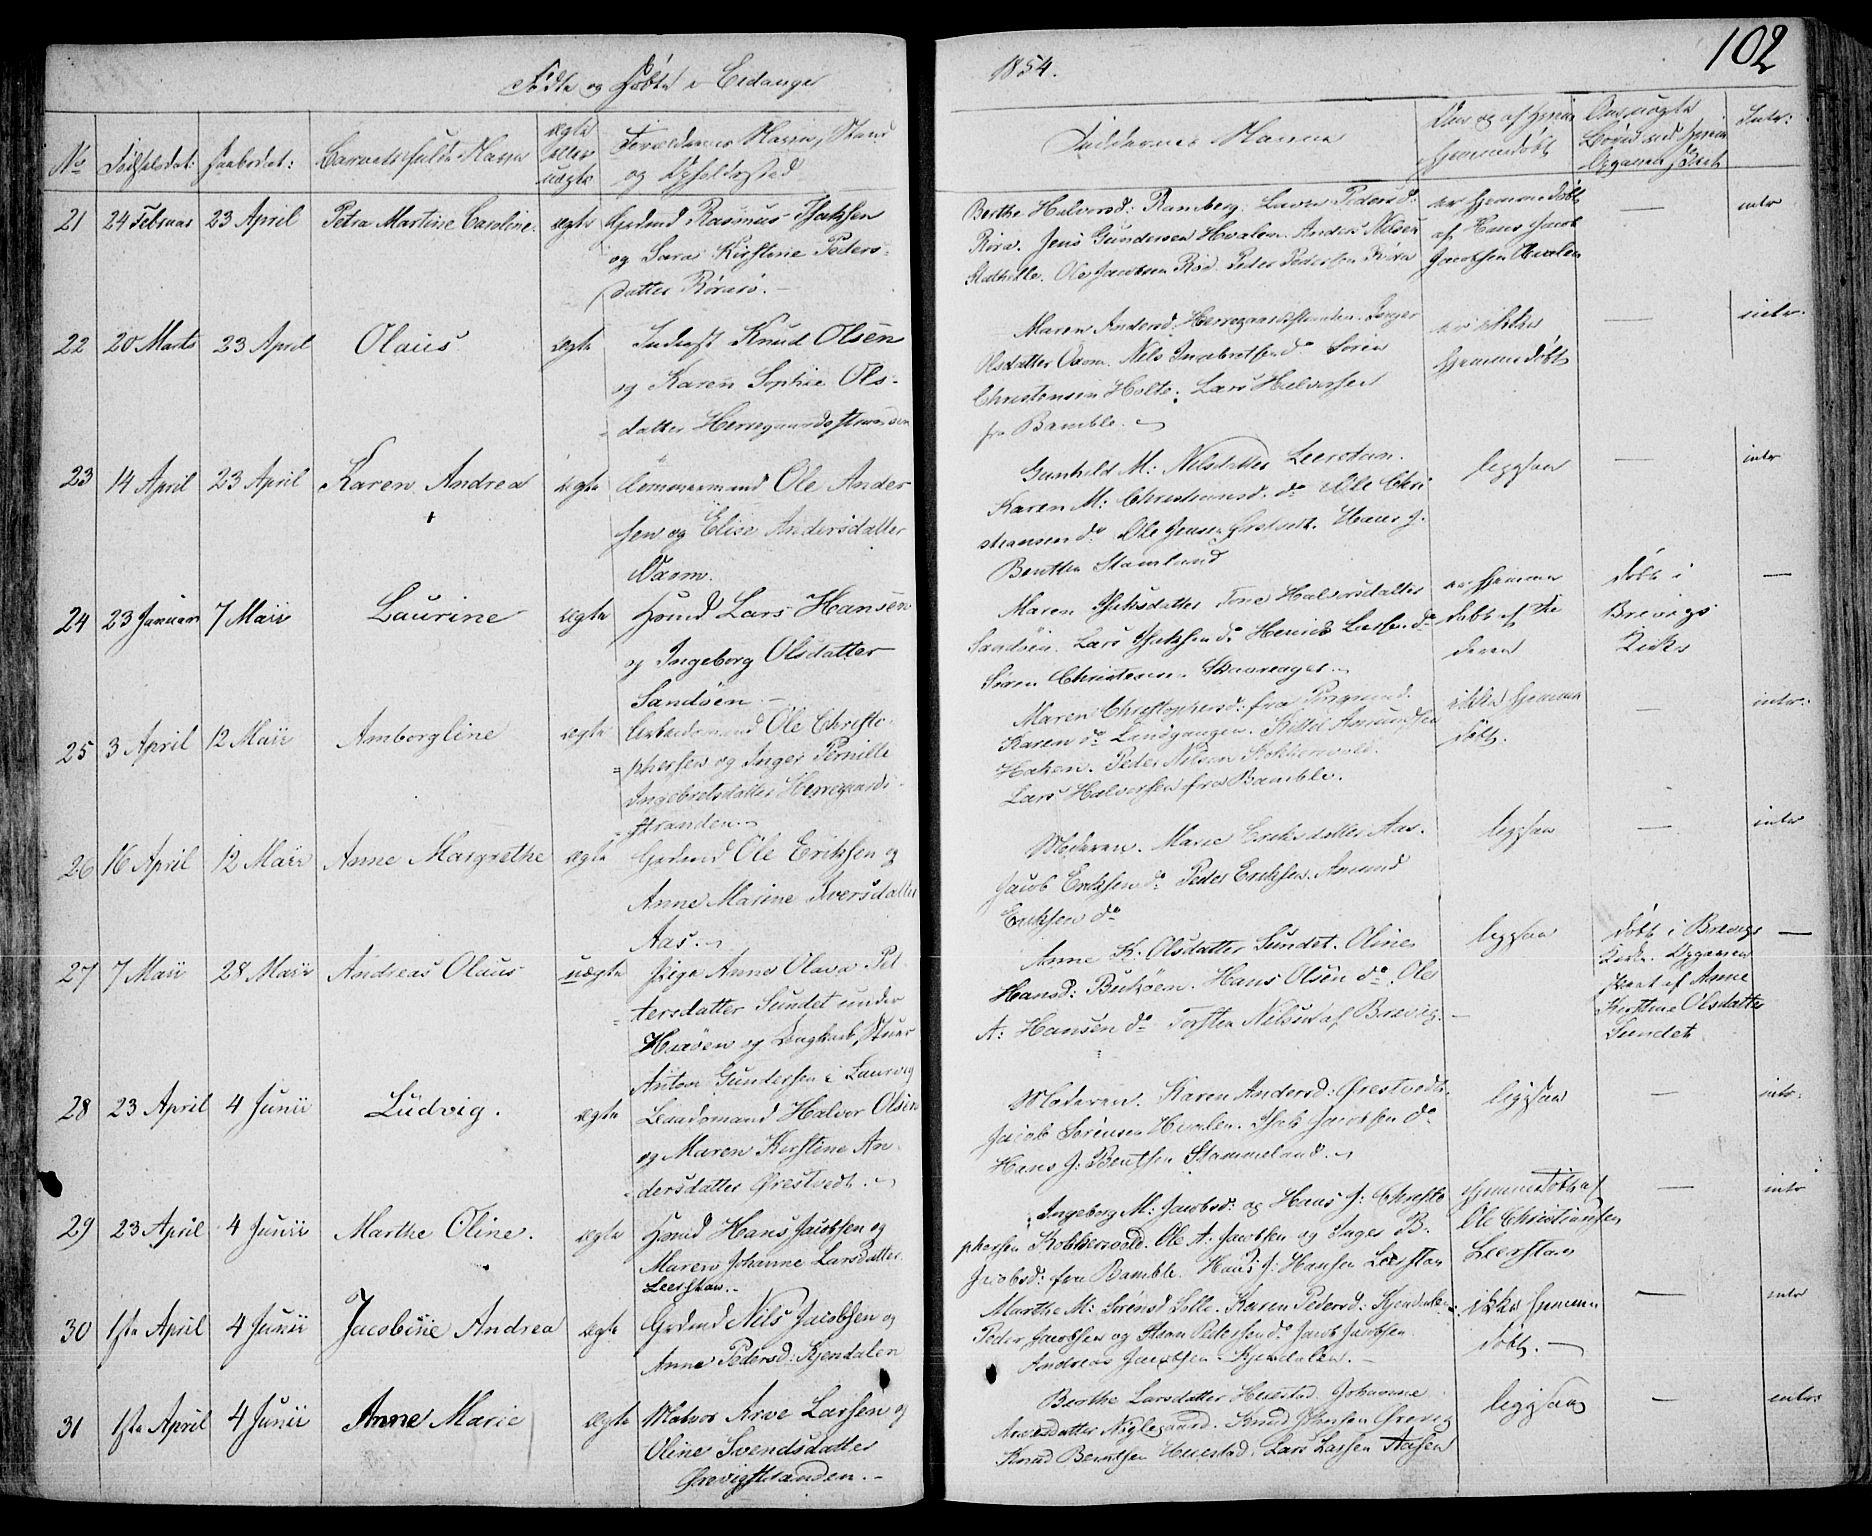 Fødte og Døbte i Eidanger
1854.
102
No
Fødselsdat:
Daabsdat:
Barnets fulde Navn
ægte
eller
uægte
Forældrenes Navn, Stand
og Opholdssted
Faddernes Navne
Om og af hvem
hjemmedøbt
Intr:
21 24 Februar 23 April Petra Martine Caroline. ægte Grdmd Rasmus Isaksen
og Sara Kirstine Peders-
datter Rørais.-
Berthe Halversd: Ramberg. Laura Pedersd:
Røra. Jens Gundersen Hvalen. Anders Nilsen
Stathelle. Ole Jacobsen Rød. Peder Pedersen Røra
er hjemmedøbt
af Hans Jacob
Jacobsen Hvalen
—
intr
22 20 Marts 23 April Olaus ægte Inderst Knud Olsen
og Karen Sophie Ols-
datter Herregaardsstranden
Maren Andersd. Herregaardsstranden. Inger
Olsdatter Oxom. Nils Ingebretsen do Søren
Christensen Holte. Lars Halversen
fr Bamble.
er ikke
hjemmedøbt
—
intr.
23 14 April 23 April Karen Andrea ægte Tømmermand Ole Ander
sen og Elise Andersdatter
Oxom.
Gunhild M: Nilsdatter Leerstan.
Karen M: Christiansd. do Ole Chri
stiansen do Ole Jensen Ørstvedt. Hans J.
Bentsen Stamland
ligesaa
—
intr
24 23 Januar 7 Maii Laurine ægte Hmd Lars Hansen
og Ingeborg Olsdatter
Sandøen.-
Maren Isaksdatter Tone Halvorsdatter
Sandøen. Lars Isaksen do Henrik Larsen do
Søren Christensen
er hjemme
døbt af
døbt i
Brevigs
Kirke
—
25 3 April 12 Maii Amborgline ægte Arbeidsmand Ole Christo-
phersen og Inger Pernille
Ingebretsdatter Herregaards-
stranden.
Maren Christophersd: fra Porsgrund.
Karen do Landgangen. Kittil Amundsen
Haken. Peder Nilsen Kokkersvold.
Lars Halversen fra Bamble.
ikke hjemme
døbt.
—
intr.
26 16 April 12 Maii Anne Margrethe ægte Grdmd Ole Eriksen og
Anne Marine Iversdatter
Aas.
Moderen. Maria Eriksdatter Aas.
Jacob Eriksen do Peder Eriksen. Amund
Eriksen do
ligesaa
—
intr
27 7 Maii 28 Maii Andreas Olaus uægte Pige Anne Olava Pet
tersdatter Sundet under
Herøen og Ungkarl,
Anton Gundersen i Laurvig
Anne K. Olsdatter Sundet. Oline
Hansd: Bukøen. Hans Olsen do. Ole
A: Hansen do Torsten Nilsen af Brevig.
ligesaa
døbt i Brevigs
Kirke.
af Anne
Kirstine Olsdatter
Sundet.
—
28 23 April 4 Junii Ludvig. ægte Leiadsmand Halvor Olsen
og Maren Kirstine An-
dersdatter Ørestvedt.
Moderen. Karen Andersd: Ørestvedt.
Jacob Sørensen Hvalen. Isak Jacobsen do
Hans J: Bentsen Stammeland.
ligesaa
—
intr.
29 23 April 4 Junii Marthe Oline. ægte Hmd Hans Jacobsen og
Maren Johanne Larsdatter
Leerstan.-
Ingeborg M: Jacobsd: og Hans J: Christo
phersen Kokkersvold. Ole A: Jacobsen og Inger B.
Jacobsd: fra Bamble. Hans J: Hansen Leerstan
hjemmedøbt af
Ole Christiansen
Leerstan
—
intr
30 1ste April 4 Junii Jacobine Andrea ægte Grdmd Nils Jacobsen og
Anne Pedersd: Kjendalen
Marthe M: Sørensd Lolle. Karen Pedersd: Kjendalen.
Peder Jacobsen og Isaac Pedersen do Jacob Jacobsen
Andreas Jacobsen Kjendalen.-
ikke hjemme
døbt.-
—
intr
31 1ste April 4 Junii Anne Marie ægte Matros Arve Larsen og
Oline Svendsdatter
Ørevigstranden.-
Berthe Larsdatter Huestad. Johanne
Arvesdatter Nøglegaard. Knud Johnsen Ørevig
Knud Bentsen Huestad. Lars Larsen Aasen
ligesaa
—
intr: